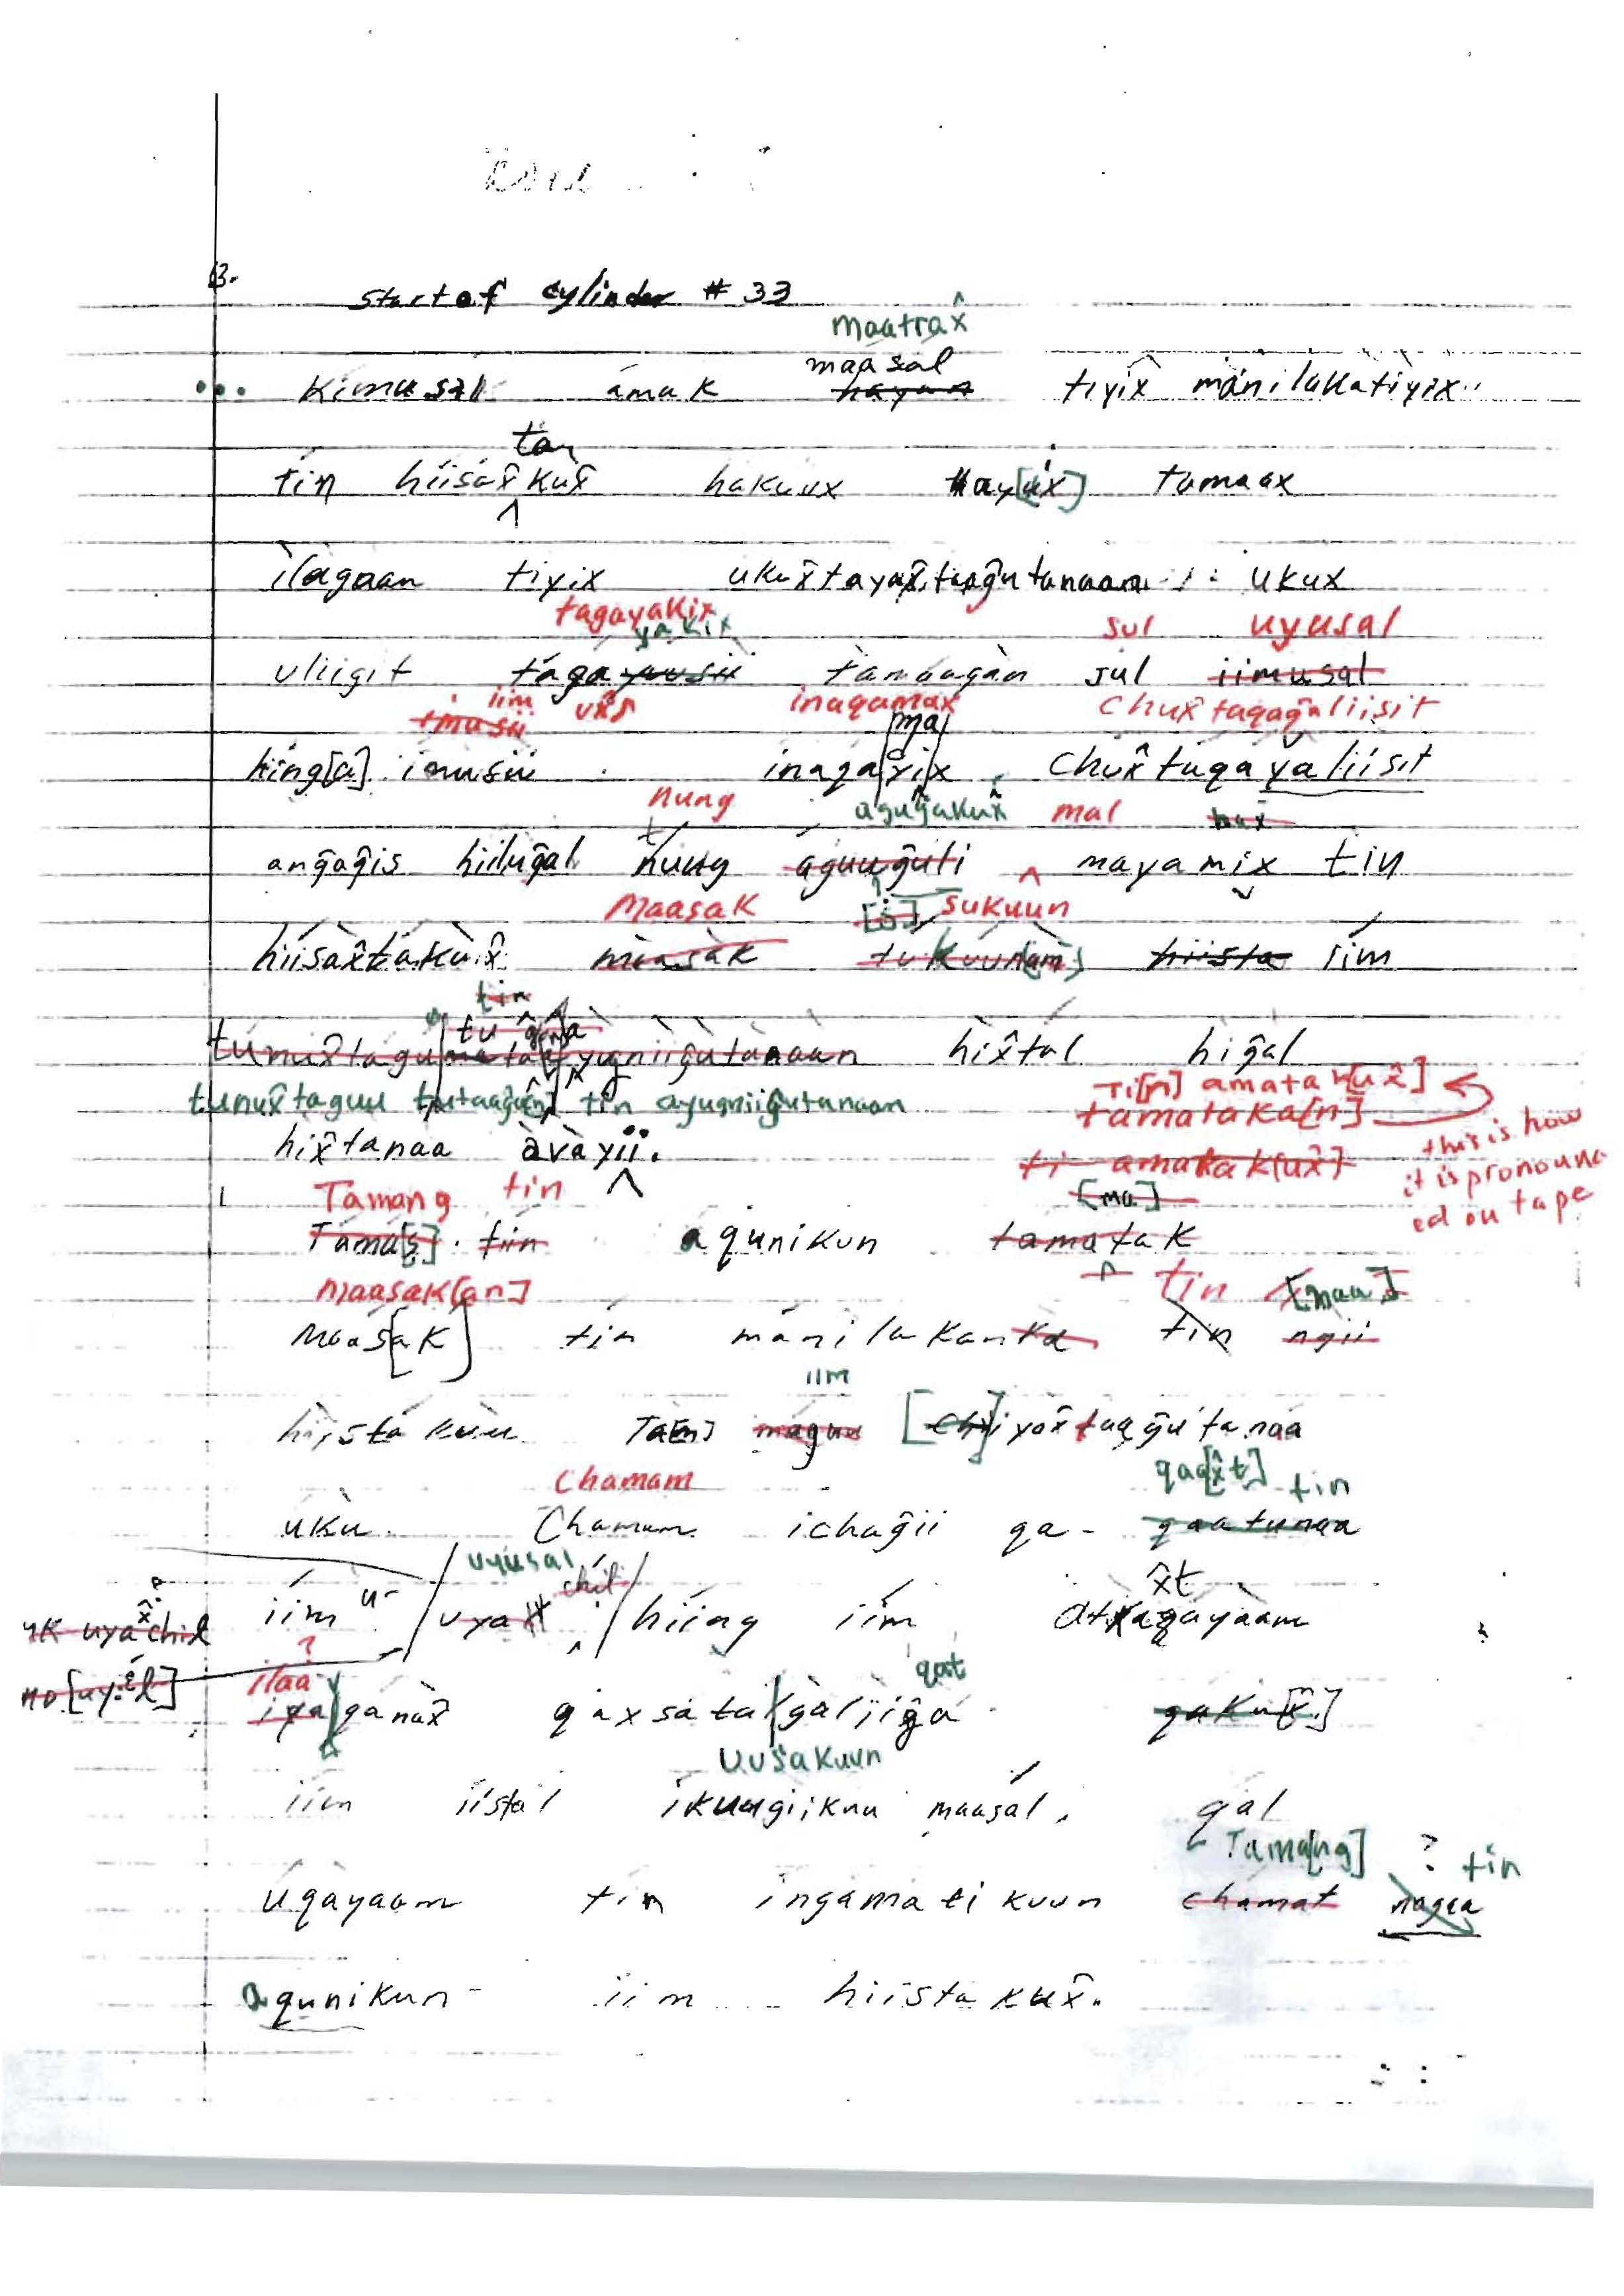 B.
start of cylinder # 33
maatrax̂
maasal
... Kimusal amak hayan tiyix̂ manilakatiyix..
ta
tin hiisax̂kux̂ hakuux hay[ux] tamaax
ilagaan tiyix ukux̂tayax̂taaĝutanaan ukux
tagayakix sul uyusal
yakix
uliigit tagayuusii tamaagan sul iimusal
imusii iim inaqamax Chux̂taqaĝaliisit
ma
hing[a] imusii inaqayix Chux̂taqayaliisit
nung aguĝakux̂ mal
anĝaĝis hiiluĝal nung aguuĝuti mayamix tin
Maasak [s] sukuun
hiisax̂takux̂ maasak tukuu[nam] hiista iim
tin
tunux̂tagu hix̂tal hiĝal
Ti[n] amatak[ux̂]
tunux̂taguu tin ayugniiĝutanaan tamataka[n]
this is how it is pronounced on tape
hix̂tanaa avayii. ti amatak[ux̂]
Tamang tin [ma]
Tama[s] tiin aqunikun tamatak
Maasak[an] tin [maa]
Maas[ak] tin manilakanka tin ngii
iim
hiistakuu Ta[m] maguu [chi]yax̂taqĝutanaa
Chamam qaq[x̂t] tin
uku Chamam ichaĝii qa- qaatunaa
uyusal chil x̂t
uk uyax̂chil iim u- uya hiing iim atxaqayaam
ilaa ? qat
no [uy.il] ixaqanax̂ qaxsatagaliiĝa qaku[x̂]
Uusakuun
iim iistal ikungiikuu maasal. qal
Tama[ng] ? tin
uqayaam tin ingamatikuun chamat nagaa
aqunikun- iim hiistakux̂.